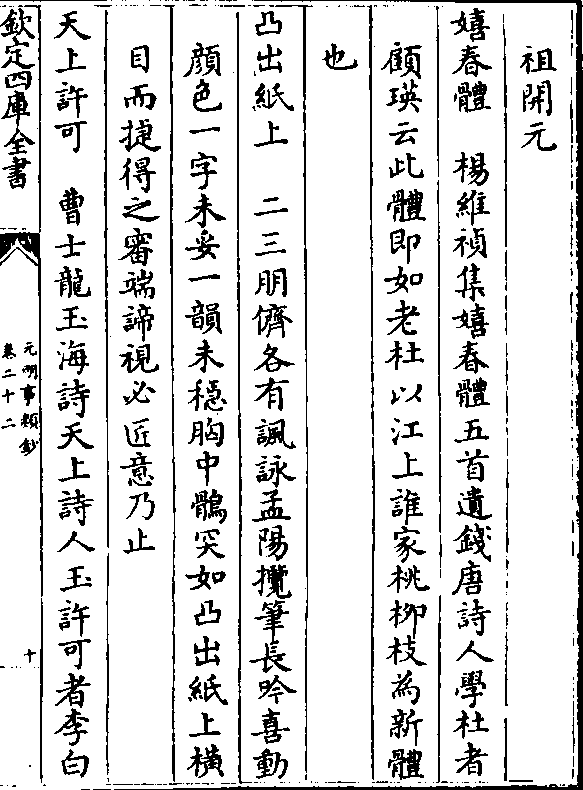 祖開元
嬉春體　楊維禎集嬉春體五首遺錢唐詩人學杜者
顧瑛云此體即如老杜以江上誰家桃柳枝為新體
也
凸出紙上　二三朋儕各有諷詠孟陽攬筆長吟喜動
顔色一字未妥一韻未穩胸中鶻突如凸出紙上橫
目而捷得之審端諦視必匠意乃止
天上許可　曹士龍玉海詩天上詩人玉許可者李白
欽定四庫全書
元明事類鈔
卷二十二
十